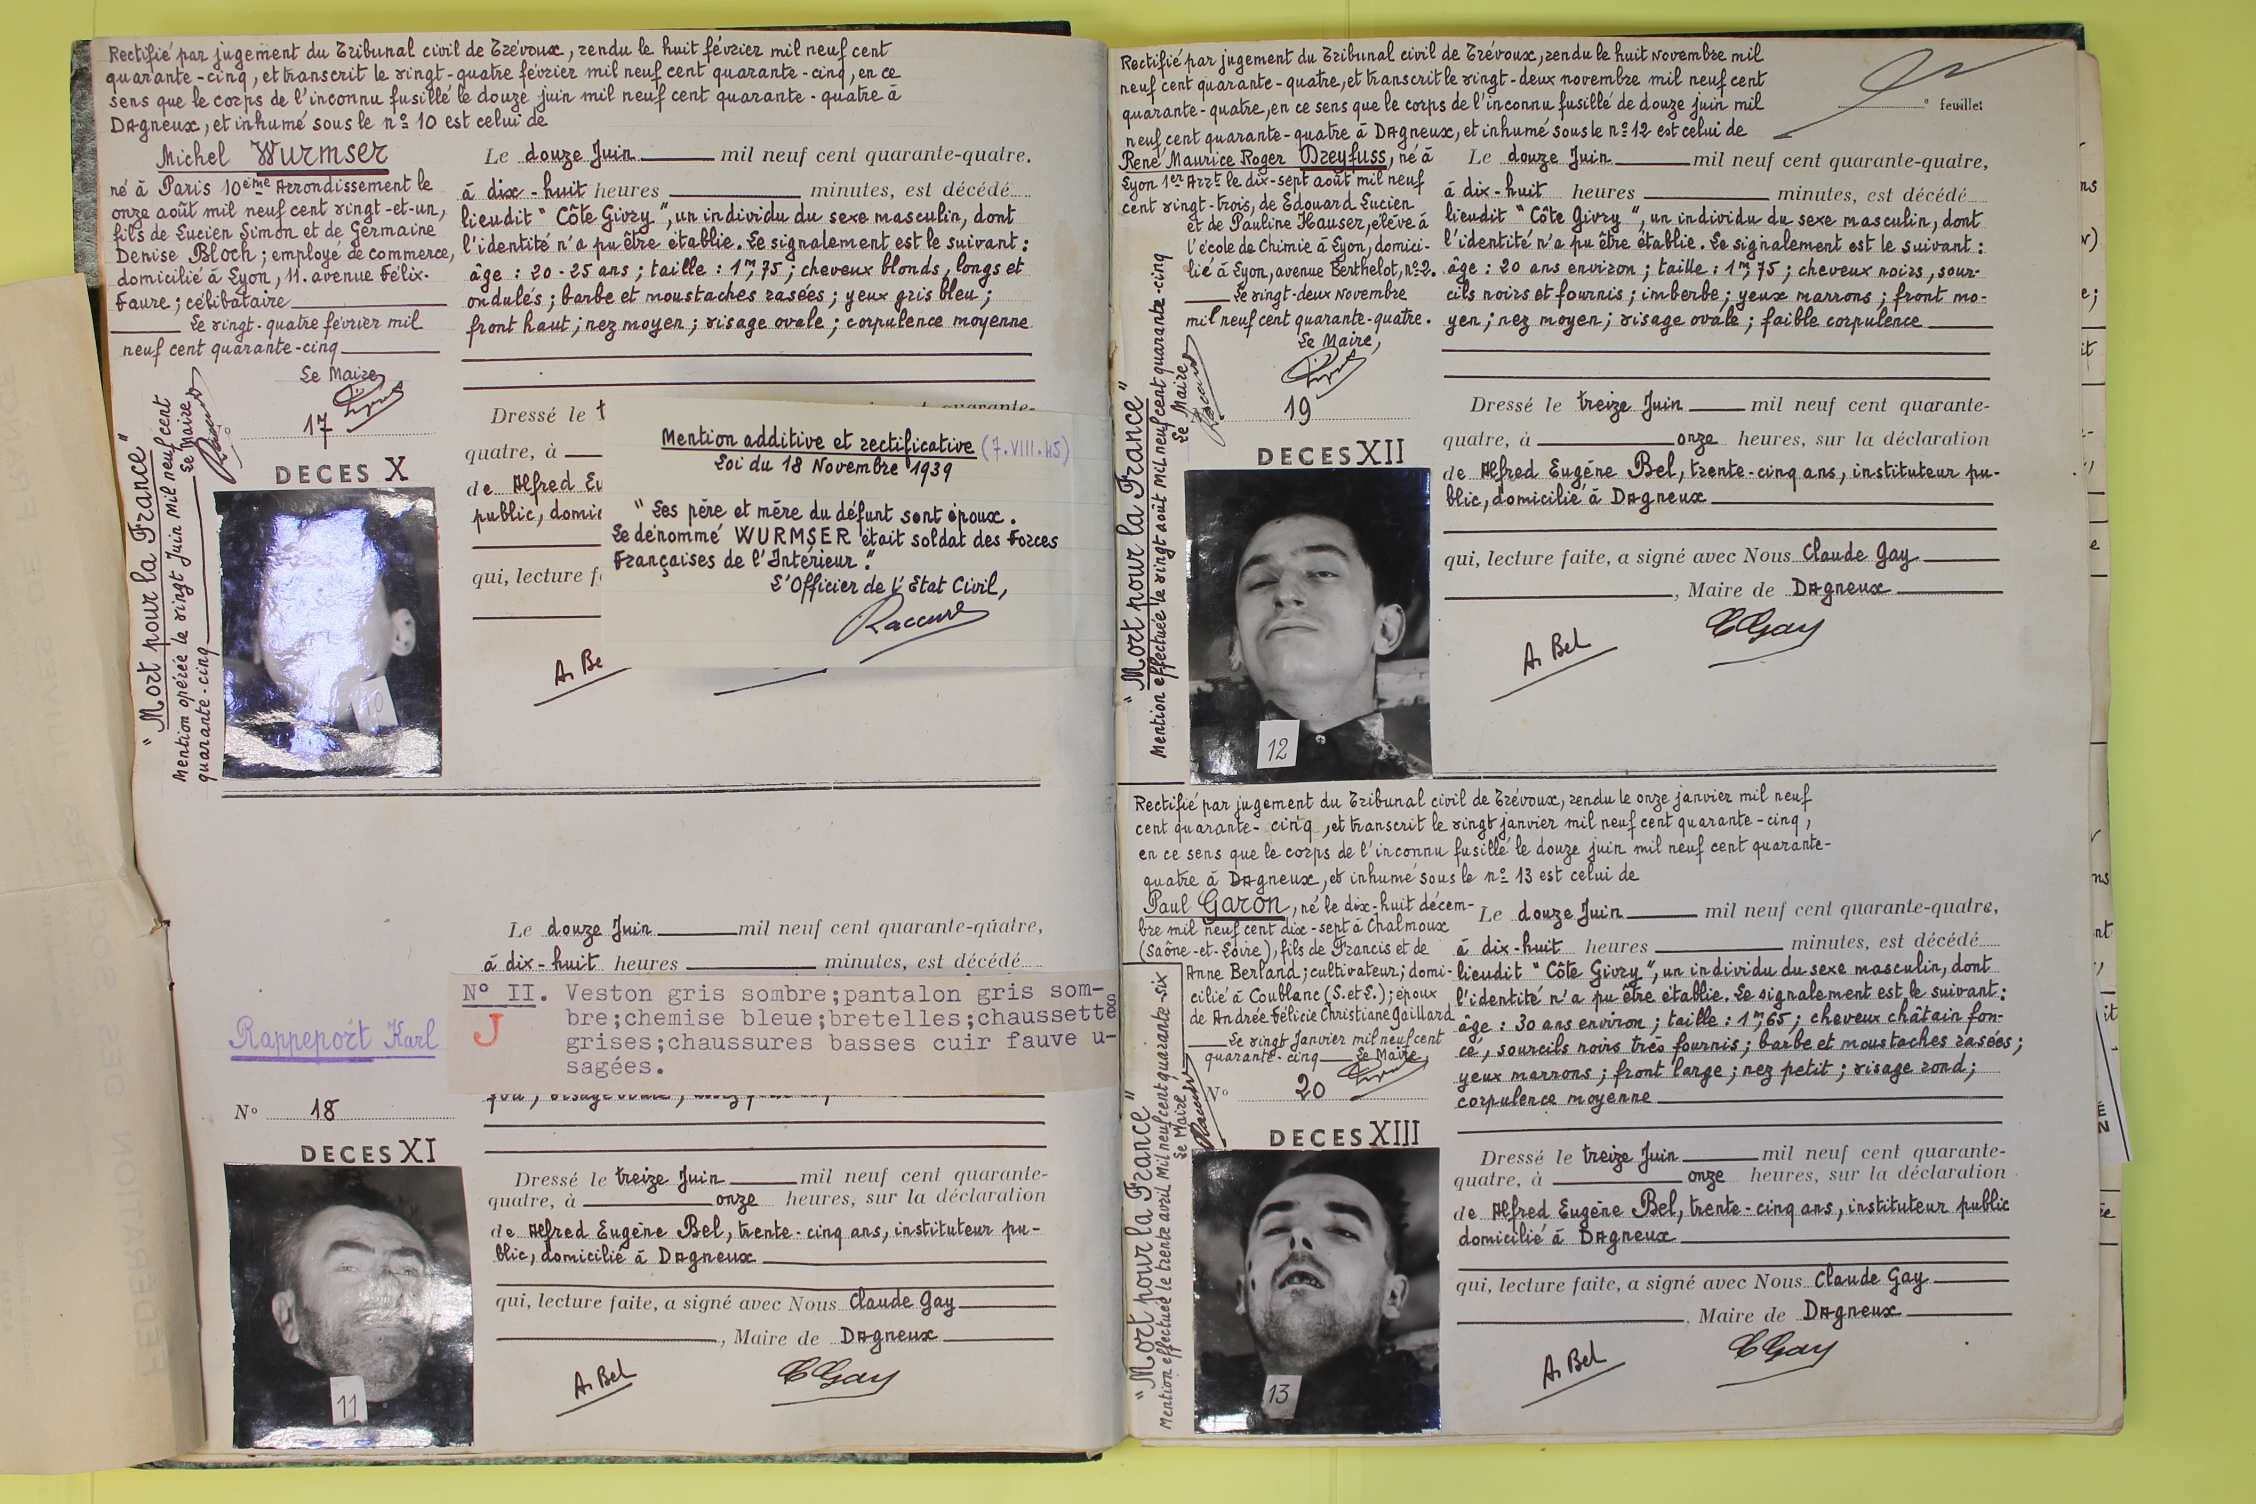 Rectifié par jugement du Tribunal civil de Trévoux, rendu le huit février mil neuf cent
quarante-cinq, et transcrit le vingt-quatre février mil neuf cent quarante-cinq, en ce
sens que le corps de l'inconnu fusillé le douze juin mil neuf cent quarante-quatre à
Dagneux, et inhumé sous le nº 10 est celui de
Michel Wurmser
né à Paris 10ème Arrondissement le
onze août mil neuf cent vingt-et-un,
fils de Lucien Simon et de Germaine
Denise Bloch; employé de commerce,
domicilié à Lyon, 11. avenue Félix-
Faure; célibataire
Le vingt-quatre février mil
neuf cent quarante-cinq
Le Maire
17
DECES X
"Mort pour la France"
Mention opérée le vingt Juin mil neuf cent
quarante-cinq Le Maire
Raccurt
10
Le douze Juin mil neuf cent quarante-quatre.
à dix-huit heures minutes, est décédé
lieudit "Côte Givry", un individu du sexe masculin, dont
l'identité n'a pu être établie. Le signalement est le suivant:
âge: 20-25 ans; taille: 1m,75; cheveux blonds, longs et
ondulés; barbe et moustaches rasées; yeux gris bleu;
front haut; nez moyen; visage ovale; corpulence moyenne
Dressé le
quatre, à
de Alfred Eu
public, domic
qui, lecture f
A. Be
Mention additive et rectificative (7.VIII.45)
Loi du 18 Novembre 1939
"Les père et mère du défunt sont époux.
Le dénommé WURMSER était soldat des Forces
Françaises de l'Intérieur."
L'Officier de l'Etat Civil,
Raccurt
Le douze Juin mil neuf cent quarante-quatre,
à dix-huit heures minutes, est décédé
Nº II. Veston gris sombre;pantalon gris som-
bre;chemise bleue;bretelles;chaussettes
J
grises;chaussures basses cuir fauve u-
sagées.
Rappeport Karl
Nº 18
DECES XI
11
Dressé le treize Juin mil neuf cent quarante-
quatre, à onze heures, sur la déclaration
de Alfred Eugène Bel, trente-cinq ans, instituteur pu-
blic, domicilié à Dagneux
qui, lecture faite, a signé avec Nous Claude Gay
, Maire de Dagneux
A. Bel
C Gay
Rectifié par jugement du Tribunal civil de Trévoux, rendu le huit Novembre mil
neuf cent quarante-quatre, et transcrit le vingt-deux novembre mil neuf cent
quarante-quatre, en ce sens que le corps de l'inconnu fusillé de douze juin mil
neuf cent quarante-quatre à Dagneux, et inhumé sous le nº 12 est celui de
e feuillet
René Maurice Roger Dreyfuss, né à
Lyon 1er Arrt le dix-sept août mil neuf
cent vingt-trois, de Edouard Lucien
et de Pauline Hauser, élève à
l'école de Chimie à Lyon, domici-
lié à Lyon, avenue Berthelot, nº 2.
Le vingt-deux Novembre
mil neuf cent quarante-quatre.
Le Maire,
19
DECES XII
"Mort pour la France"
Mention effectuée le vingt août mil neuf cent quarante-cinq
Le Maire
Raccurt
12
Le douze Juin mil neuf cent quarante-quatre,
à dix-huit heures minutes, est décédé
lieudit "Côte Givry", un individu du sexe masculin, dont
l'identité n'a pu être établie. Le signalement est le suivant:
âge: 20 ans environ; taille: 1m,75; cheveux noirs, sour-
cils noirs et fournis; imberbe; yeux marrons; front mo-
yen; nez moyen; visage ovale; faible corpulence
Dressé le treize Juin mil neuf cent quarante-
quatre, à onze heures, sur la déclaration
de Alfred Eugène Bel, trente-cinq ans, instituteur pu-
blic, domicilié à Dagneux
qui, lecture faite, a signé avec Nous Claude Gay
, Maire de Dagneux
A. Bel
C Gay
Rectifié par jugement du Tribunal civil de Trévoux, rendu le onze janvier mil neuf
cent quarante-cinq, et transcrit le vingt janvier mil neuf cent quarante-cinq,
en ce sens que le corps de l'inconnu fusillé le douze juin mil neuf cent quarante-
quatre à Dagneux, et inhumé sous le nº 13 est celui de
Paul Garon, né le dix-huit décem-
bre mil neuf cent dix-sept à Chalmoux
(Saône-et-Loire), fils de Francis et de
Anne Berland; cultivateur; domi-
cilié à Coublanc (S. et L.); époux
de Andrée Félicie Christiane Gaillard
Le vingt Janvier mil neuf cent
quarante-cinq Le Maire,
Nº 20
DECES XIII
"Mort pour la France"
Mention effectuée le trente avril mil neuf cent quarante-six
Le Maire,
Raccurt
13
Le douze Juin mil neuf cent quarante-quatre,
à dix-huit heures minutes, est décédé
lieudit "Côte Givry", un individu du sexe masculin, dont
l'identité n'a pu être établie. Le signalement est le suivant:
âge: 30 ans environ; taille: 1m,65; cheveux châtain fon-
cé, sourcils noirs très fournis; barbe et moustaches rasées;
yeux marrons; front large; nez petit; visage rond;
corpulence moyenne
Dressé le treize Juin mil neuf cent quarante-
quatre, à onze heures, sur la déclaration
de Alfred Eugène Bel, trente-cinq ans, instituteur public
domicilié à Dagneux
qui, lecture faite, a signé avec Nous Claude Gay
, Maire de Dagneux
A. Bel
C Gay